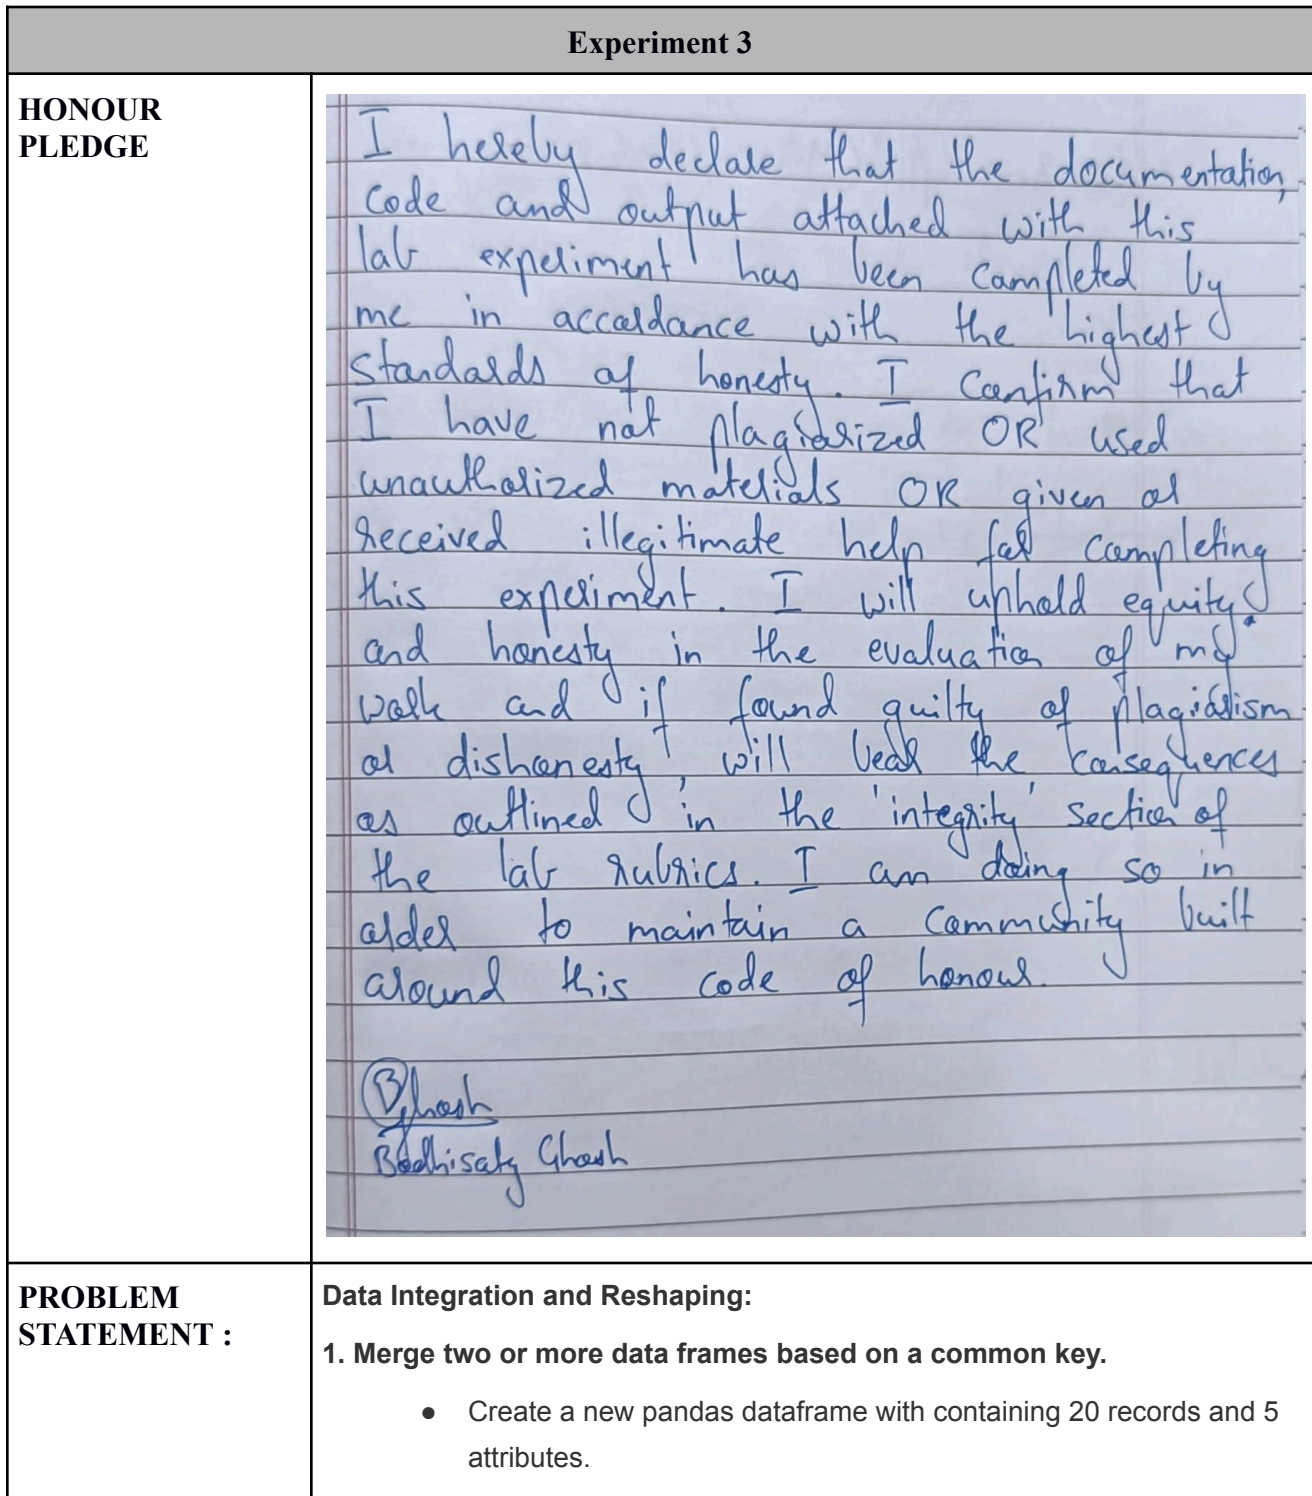 Experiment 3
HONOUR
PLEDGE
I hereby declare that the documentation,
code and output attached with this
lab experiment has been completed by
me in accordance with the highest
standards of honesty. I confirm that
I have not plagiarized OR used
unauthorized materials OR given or
received illegitimate help for completing
this experiment. I will uphold equity
and honesty in the evaluation of my
work and if found guilty of plagiarism
or dishonesty, will bear the consequences
as outlined in the 'integrity' section of
the lab rubrics. I am doing so in
order to maintain a community built
around this code of honour.
BGhosh
Bodhisatya Ghosh
PROBLEM
STATEMENT :
Data Integration and Reshaping:
1. Merge two or more data frames based on a common key.
● Create a new pandas dataframe with containing 20 records and 5
attributes.